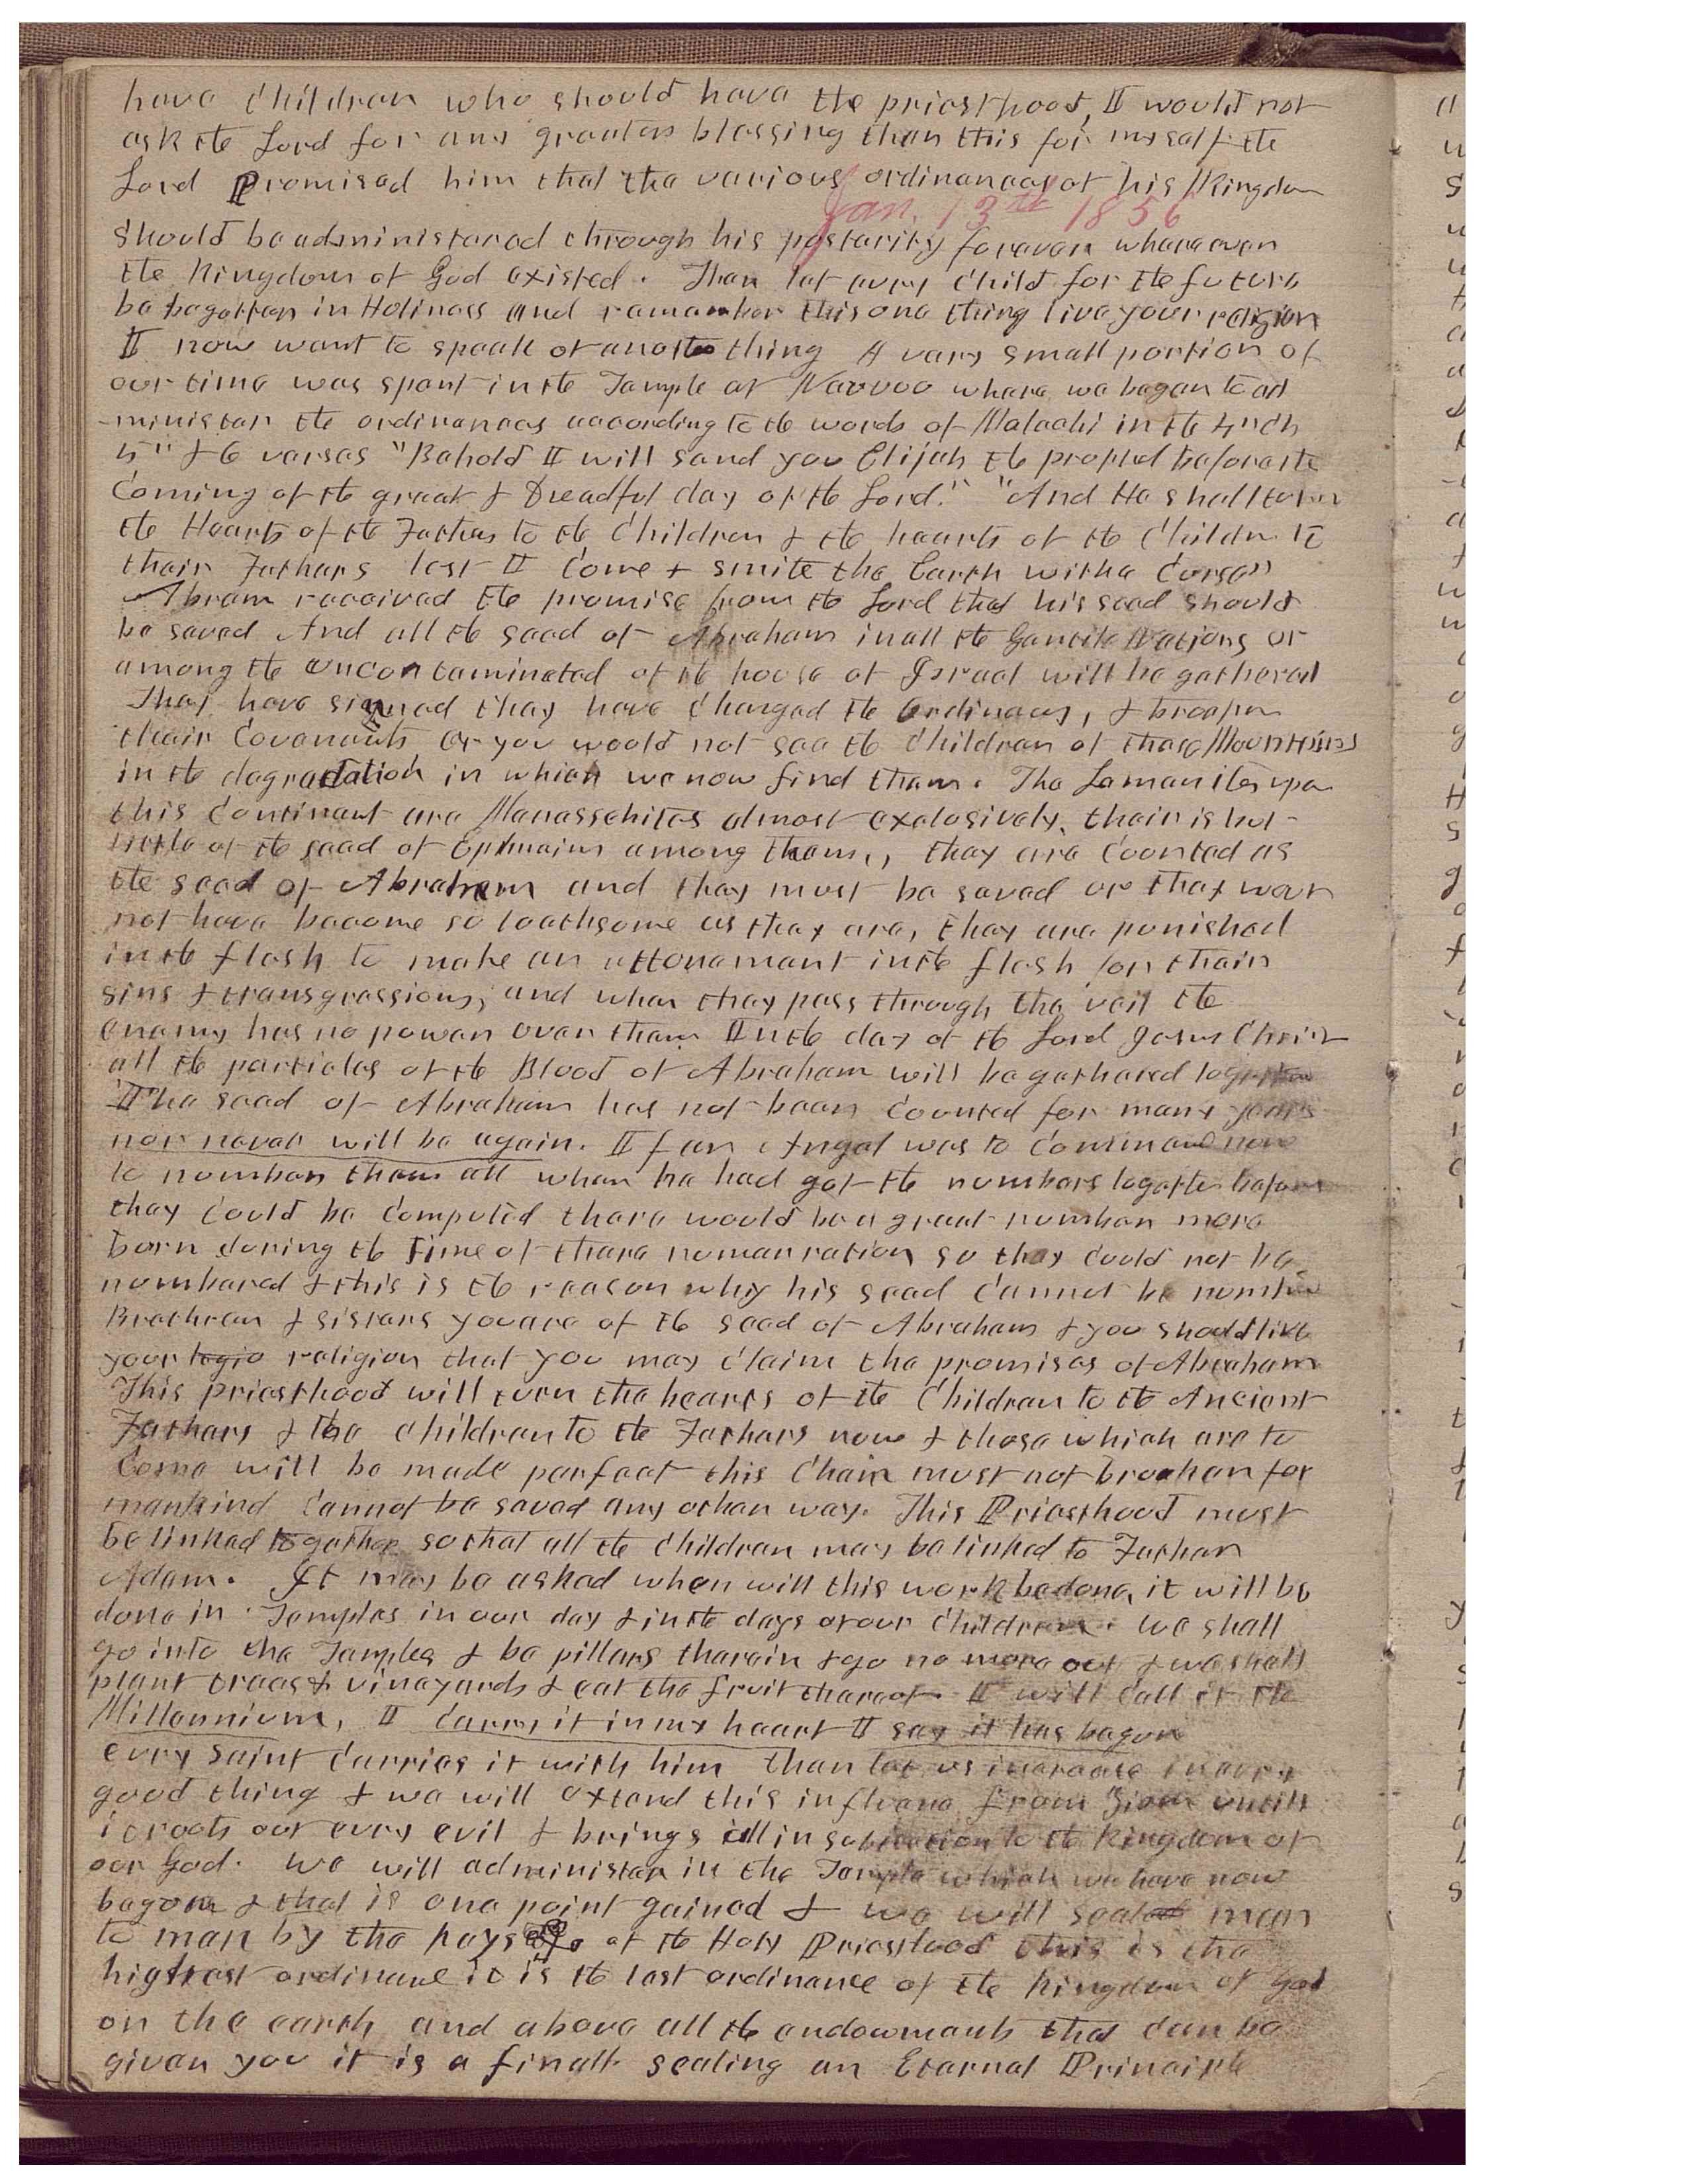 have Children who should have the priesthood, I would not
ask the Lord for any greater blessing than this for myself the
Lord Promised him that the various ordinances of his Kingdom
Jan. 13th 1856
Should be administered through his posterity forever wharever
the Kingdom of God existed. Then let every Child for the future
be begotten in Holiness and remember this one thing live your religion
I now want to speak of another thing A very small portion of
our time was spent in the Temple at Nauvoo whare we began to ad
-minister the ordinances according to the words of Malachi in the 4" ch
5" & 6 verses "Behold I will send you Elijah the prophet before the
Coming of the great & Dreadful day of the Lord." "And He shall turn
the Hearts of the Fathers to the Children & the hearts of the Childrn to
their Fathers lest I Come & smite the Earth with a Curse"
Abram received the promise from the Lord that his seed should
be saved And all the seed of Abraham in all the Gentile Nations or
among the uncontaminated of the house of Israel will be gathered
They have signned they have Changed the Ordinances, & broken
their Covenants or you would not see the Children of these Mountains
in the degradation in which we now find them. The Lamanites upon
this Continant are Manassehites almost exclusively, their is but
little of the seed of Ephraim among them,, they are Counted as
the seed of Abraham and they must be saved or they wer
not have become so loathsome as they are, they are punished
in the flesh to make an attonement in the flesh for their
sins & transgressions, and when they pass through the veil the
enemy has no power over them In the day of the Lord Jesus Christ
all the particles of the Blood of Abraham will be gathered together
The seed of Abraham has not been Counted for many years
nor never will be again. If an Angel was to Commence now
to number them all when he had got the numbers togather before
they Could be Computed there would be a great number more
born during the time of there numerration so they Could not be
numbered & this is the reason why his seed Cannot be number
Brethren & sisters you are of the seed of Abraham & you should live
your legio religion that you may Claim the promises of Abraham
This priesthood will turn the hearts of the Children to the Ancient
Fathers & the Children to the Fathers now & those which are to
Come will be made perfect this Chain must not broaken for
mankind Cannot be saved any other way. This Priesthood must
be linked togather so that all the Children may be linked to Father
Adam. It may be asked when will this work be done, it will be
done in Temples in our day & in the days of our Children. We shall
go into the Temples & be pillars therein & go no more out & we shall
plant trees & vineyards & eat the fruit thereof. I will Call it the
Millennium, I Carry it in my heart I say it has begun
evry Saint Carries it with him then let us increase in evry
good thing & we will extend this influene from Zion untill
it roots out evry evil & brings all in subjection to the Kingdom of
our God. We will administer in the Temple which we have now
begun & that is one point gained & we will seal man
to man by the keys of the Holy Priesthood this is the
highest ordinance it is the last ordinance of the Kingdom of God
on the earth and above all the endowments that Can be
given you it is a finall sealing an Eternal Principle